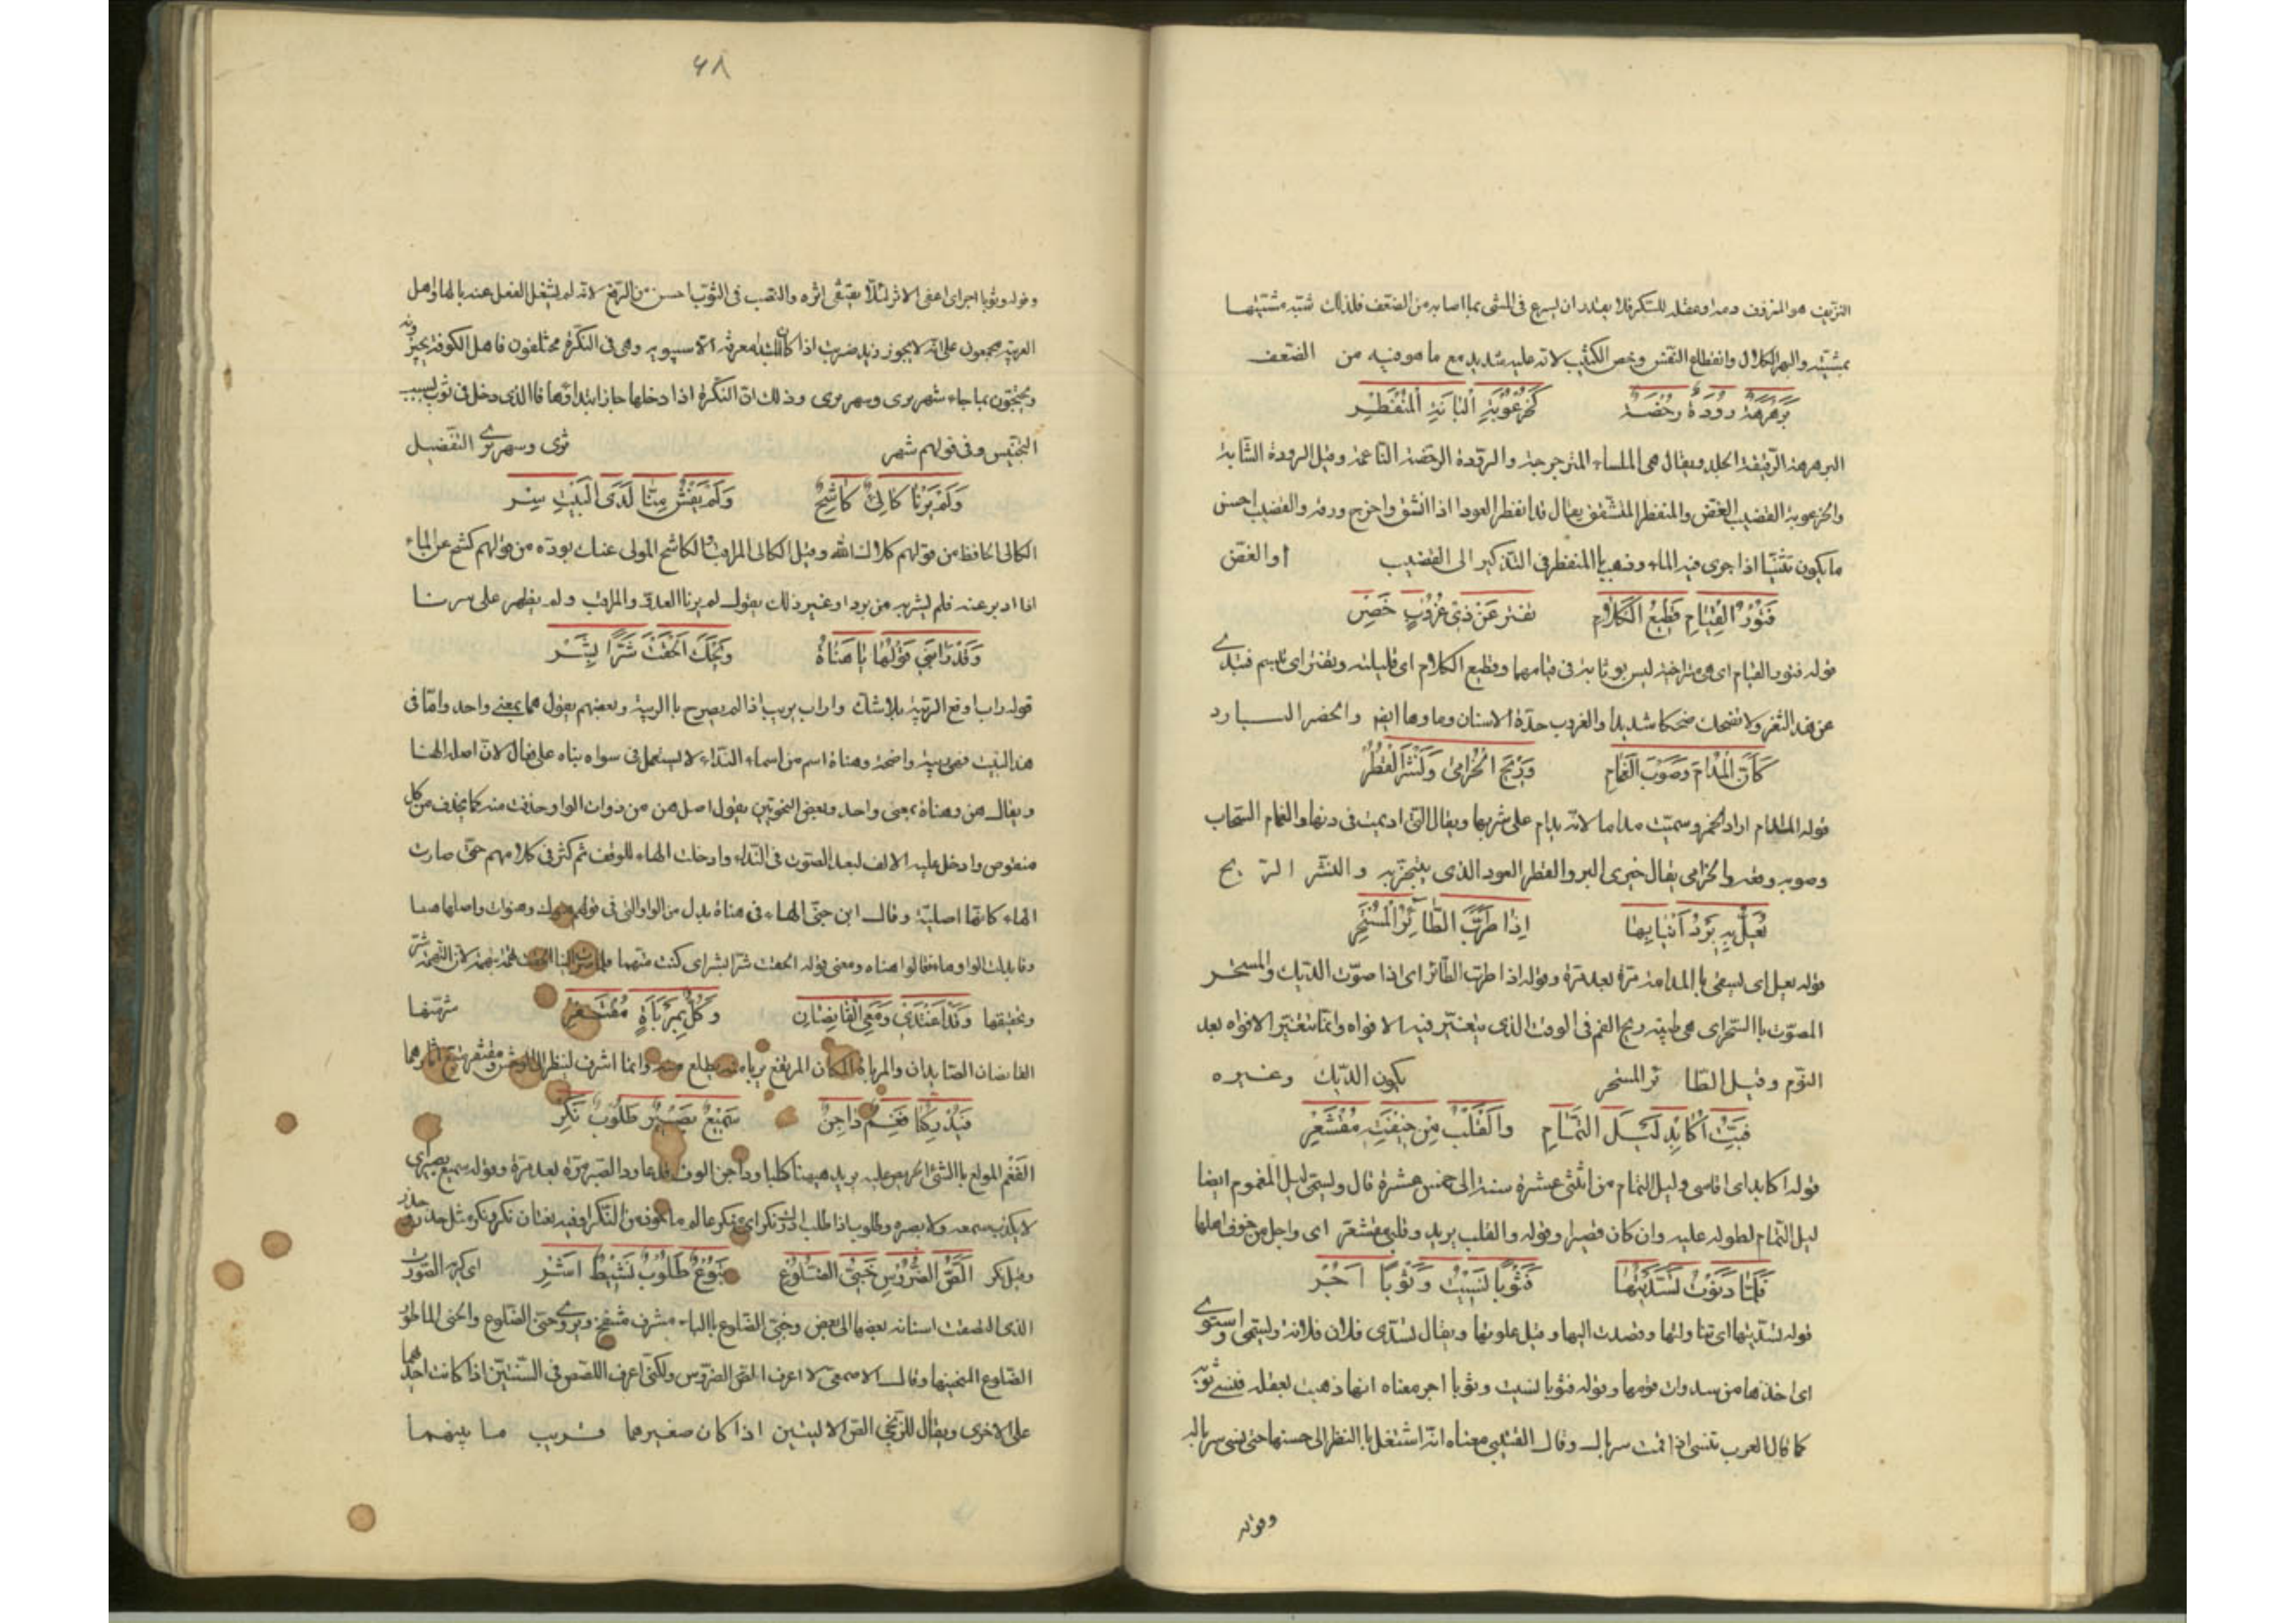 النزيف هو المنزوف دمه او عقله للسكر فلا يقدر ان يسرع في المشي بما اصابه من الضعف فلذلك شبه مشيتها
بمشيته والبهر الكلال وانقطاع النفس وخص الكثيب لانه عليه شديد مع ما هو فيه من الضعف
بَرَهرَهَةٌ رودَةٌ رخصَةٌ كَخُرعُوبَةِ البانَةِ المُنفَطِر
البرهرهة الرقيقة الجلد ويقال هي الملساء المترجرجة والرودة الرخصة الناعمة وقيل الرودة الشابة
والخرعوبة القضيب الغض والمنفطر المتشقق يقال قد انفطر العود اذا انشق واخرج ورقه والقضيب احسن
ما يكون تثنيا اذا جرى فيه الماء وذهب بالمنفطر في التذكير الى القضيب او الغض
فَتُورُ القِيامِ قَطِيعُ الكَلامِ تفتر عَن ذي غُرُوبٍ خَصِر
قوله فتور القيام اي هي متراخية ليس بوثابة في قيامها وقطيع الكلام اي قليلته وتفتر اي تبسم فتبدي
عن هذا الثغر ولا تضحك ضحكا شديدا والغروب حدة الاسنان وماوها ايضا والخصر البارد
كَأَنَّ المُدامَ وَصَوبَ الغَمامِ وَرِيحَ الخُزامى وَنَشرَ القُطُر
قوله المدام اراد الخمر وسميت مداما لانه يدام على شربها ويقال التي اديمت في دنها والغمام السحاب
وصوبه وقعه والخزامى يقال خيرى البر والقطر العود الذي يتبخر به والنشر الريح
يُعَلُّ بِهِ بَردُ اَنيابِها اِذا طَرَّبَ الطّائِرُ المُستَحِر
قوله يعل اي يسقى بالمدامة مرة بعد مرة وقوله اذا طرب الطائر اي اذا صوت الديك والمستحر
المصوت بالسحر اي هي طيبة ريح الفم في الوقت الذي يتغير فيه الافواه وانما تتغير الافواه بعد
النوم وقيل الطائر المستحر يكون الديك وغيره
فَبِتُّ اُكابِدُ لَيلَ التِّمامِ وَالقَلبُ مِن خِيفَةٍ مُقشَعِر
قوله اكابد اي اقاسي وليل التمام من اثنتي عشرة سنة الى خمس عشرة قال ويسمى ليل المغموم ايضا
ليل التمام لطوله عليه وان كان قصيرا وقوله والقلب يريد وقلبي مقشعر اي واجل من خوف اهلها
فَلَمّا دَنَوتُ تَسَدَّيتُها فَثَوبًا نَسِيتُ وَثَوبًا اَجُرّ
قوله تسديتها اي تناولتها وقصدت اليها وقيل علوتها ويقال تسدى فلان فلانة
اي اخذها من سدوات قومها وقوله فثوبا نسيت وثوبا اجر معناه انها ذهبت بعقله فنسي ثوبه
كما قال العرب تنسي اذا قمت سربالي وقال القتيبي معناه انه اشتغل بالنظر الى حسنها حتى نسي سرباله
وقوله
٤٨
وقوله وثوبا اجر اي اعفى الاثر لئلا يقتفى اثره والنصب في الثوب احسن من الرفع لانه لم يشغل الفعل عنه بالهاء واهل
العربية مجمعون على انه لا يجوز زيد ضربت اذا كان معرفة الا سيبويه وهي في النكرة مختلفون فاهل الكوفة يجيزونه
ويحتجون بما جاء شهر ثرى وشهر ترى وذلك ان النكرة اذا دخلها جاز ابتداؤها فالذي دخل في ثوب بسبب
التجنيس وفي قولهم شهر ثرى وشهر ترى التفضيل
وَلَم يَرَنا كالِئٌ كاشِحٌ وَلَم يَفشُ مِنّا لَدَى البَيتِ سِر
الكالئ الحافظ من قولهم كلاك الله وقيل الكالئ المراقب والكاشح المولي عنك بوده من قولهم كشح عن الماء
اذا ادبر عنه فلم يشربه من برد او غير ذلك يقول لم يرنا العدو والمراقب ولم يظهر على سرنا
وَقَد رابَنِي قَولُها يا هَناهُ وَيحَكَ اَلحَقتَ شَرًّا بِشَرّ
قوله راب اوقع الريبة بلا شك واراب يريب اذا لم يصرح بالريبة وبعضهم يقول هما بمعنى واحد واما في
هذا البيت فهي ريبة واضحة وهناه اسم من اسماء النداء لا يستعمل في سواه بناه على فعال لان اصله الهنا
ويقال هن وهناه بمعنى واحد وبعض النحويين يقول اصل هن من ذوات الواو حذفت منه كما يحذف من كل
منقوص وادخل عليه الالف لبعد الصوت في النداء وادخلت الهاء للوقف ثم كثر في كلامهم حتى صارت
الهاء كانها اصلية وقال ابن جني الهاء في هناه بدل من الواو التي في قولهم هنوك وهنوات واصلها هنا
وفابدلت الواو هاء فقالوا هناه ومعنى قوله الحقت شرا بشر اي كنت متهما فلما لان التهمة شر
وتحقيقها شر منها وَقَد اَغتَدي وَمَعِي القانِصانِ وَكُلٌّ بِمَربَأَةٍ مُقتَفِر
القانصان الصائدان والمرباة المكان المرتفع يربا منه وانما اشرف لينظر الى الوحش ومقتفر يتبع اثارهما
فَيُدرِكُنا فَغِمٌ داجِنٌ سَمِيعٌ بَصِيرٌ طَلُوبٌ نَكِر
الفغم المولع بالشئ الحريص عليه يريد ههنا كلبا وداجن الوف قد عاود الصيد مرة بعد مرة وقوله سميع بصير اي
لا يكذب سمعه ولا بصره وطلوب اذا طلب ونكر اي منكر عالم ماخوذ من النكر وفيه لغتان نكر ونكر مثل حذر وحذر
وقيل نكر اي كريه الصورة اَلَصُّ الضُّرُوسِ حَنِيُّ الضُّلُوعِ تَبُوعٌ طَلُوبٌ نَشِيطٌ اَشِر
الذي التصقت اسنانه بعضها الى بعض وحبي الضلوع بالباء مشرف منتفخ ويروى حني الضلوع واحنى الماطور
الضلوع المنحنيها وقال الاصمعي لا اعرف الص الضروس ولكني اعرف اللصص في السنين اذا كانت احداهما
على الاخرى ويقال للزنجي الص الاليتين اذا كان صغيرهما قريب ما بينهما